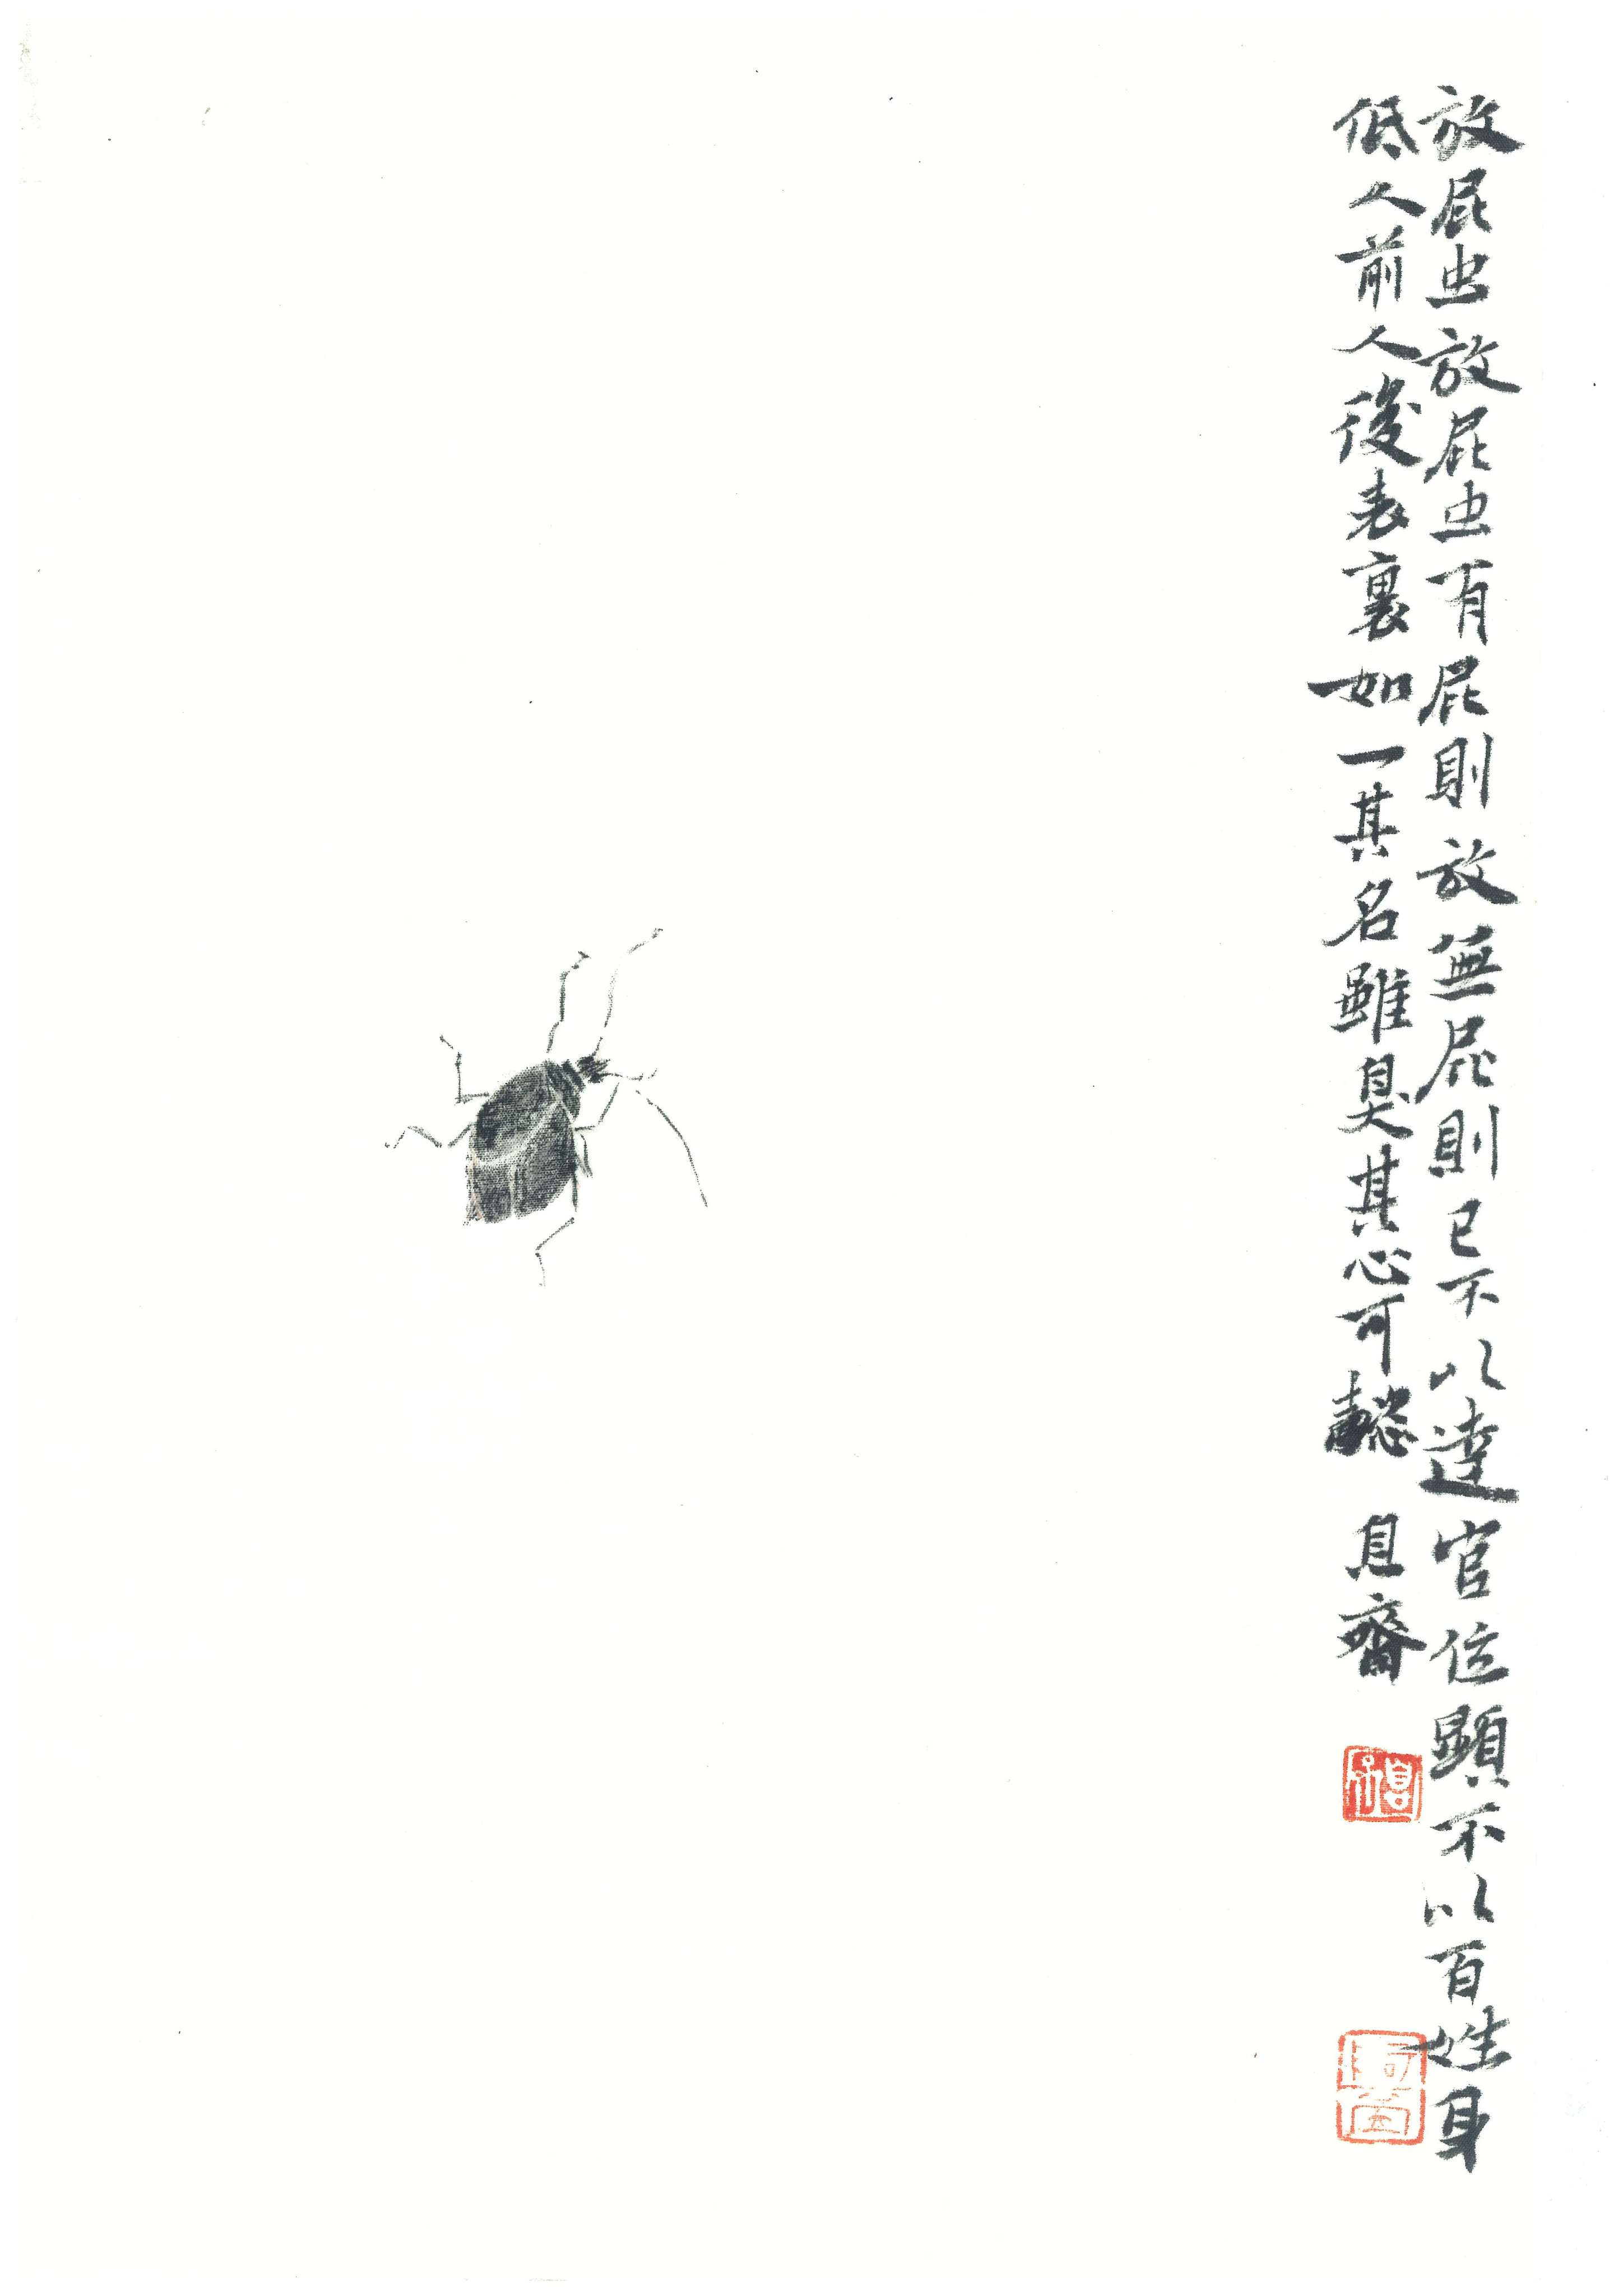 放屁虫放屁虫有屁則放無屁則已不以達官位顯不以百姓身
低人前人後表裏如一其名雖臭其心可懿 息齋